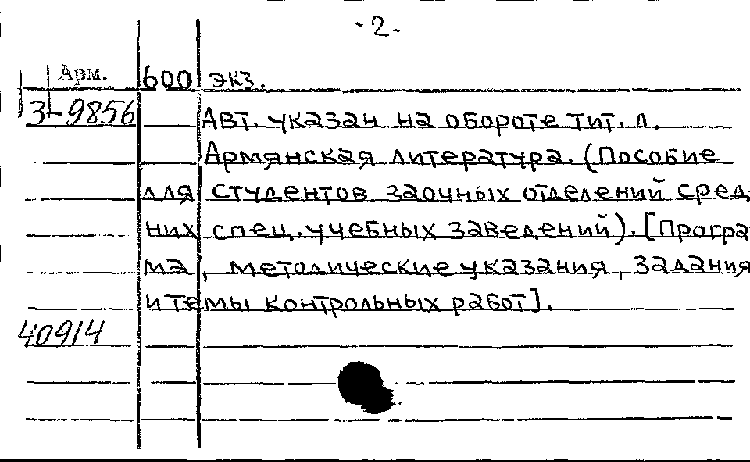 -2-
Арм. 600 экз.
3-9856
Авт. указан на обороте тит. л.
Армянская литература. (Пособие
для студентов заочных отделений сред
них спец. учебных заведений). [Програ
ма, методические указания, задания
и темы контрольных работ].
40914